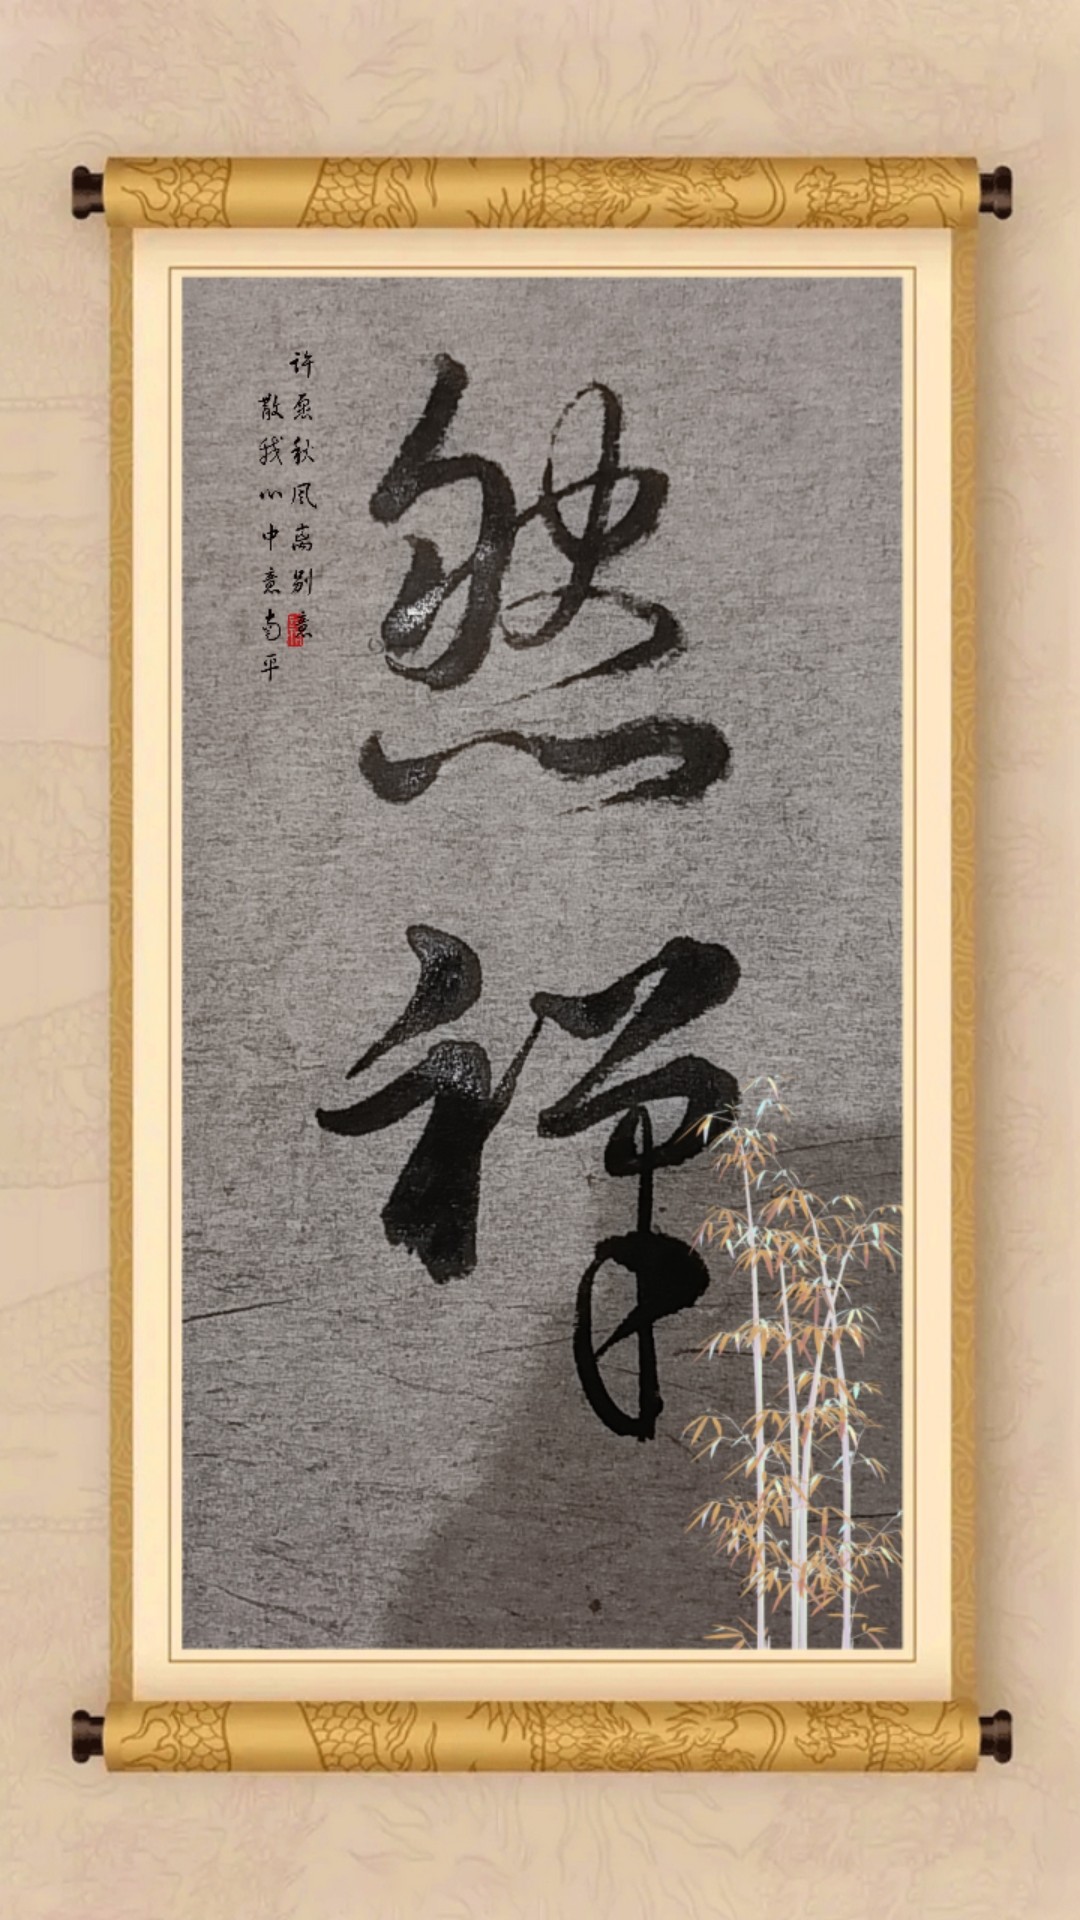 禅
许愿秋风离别意
散我心中意南平